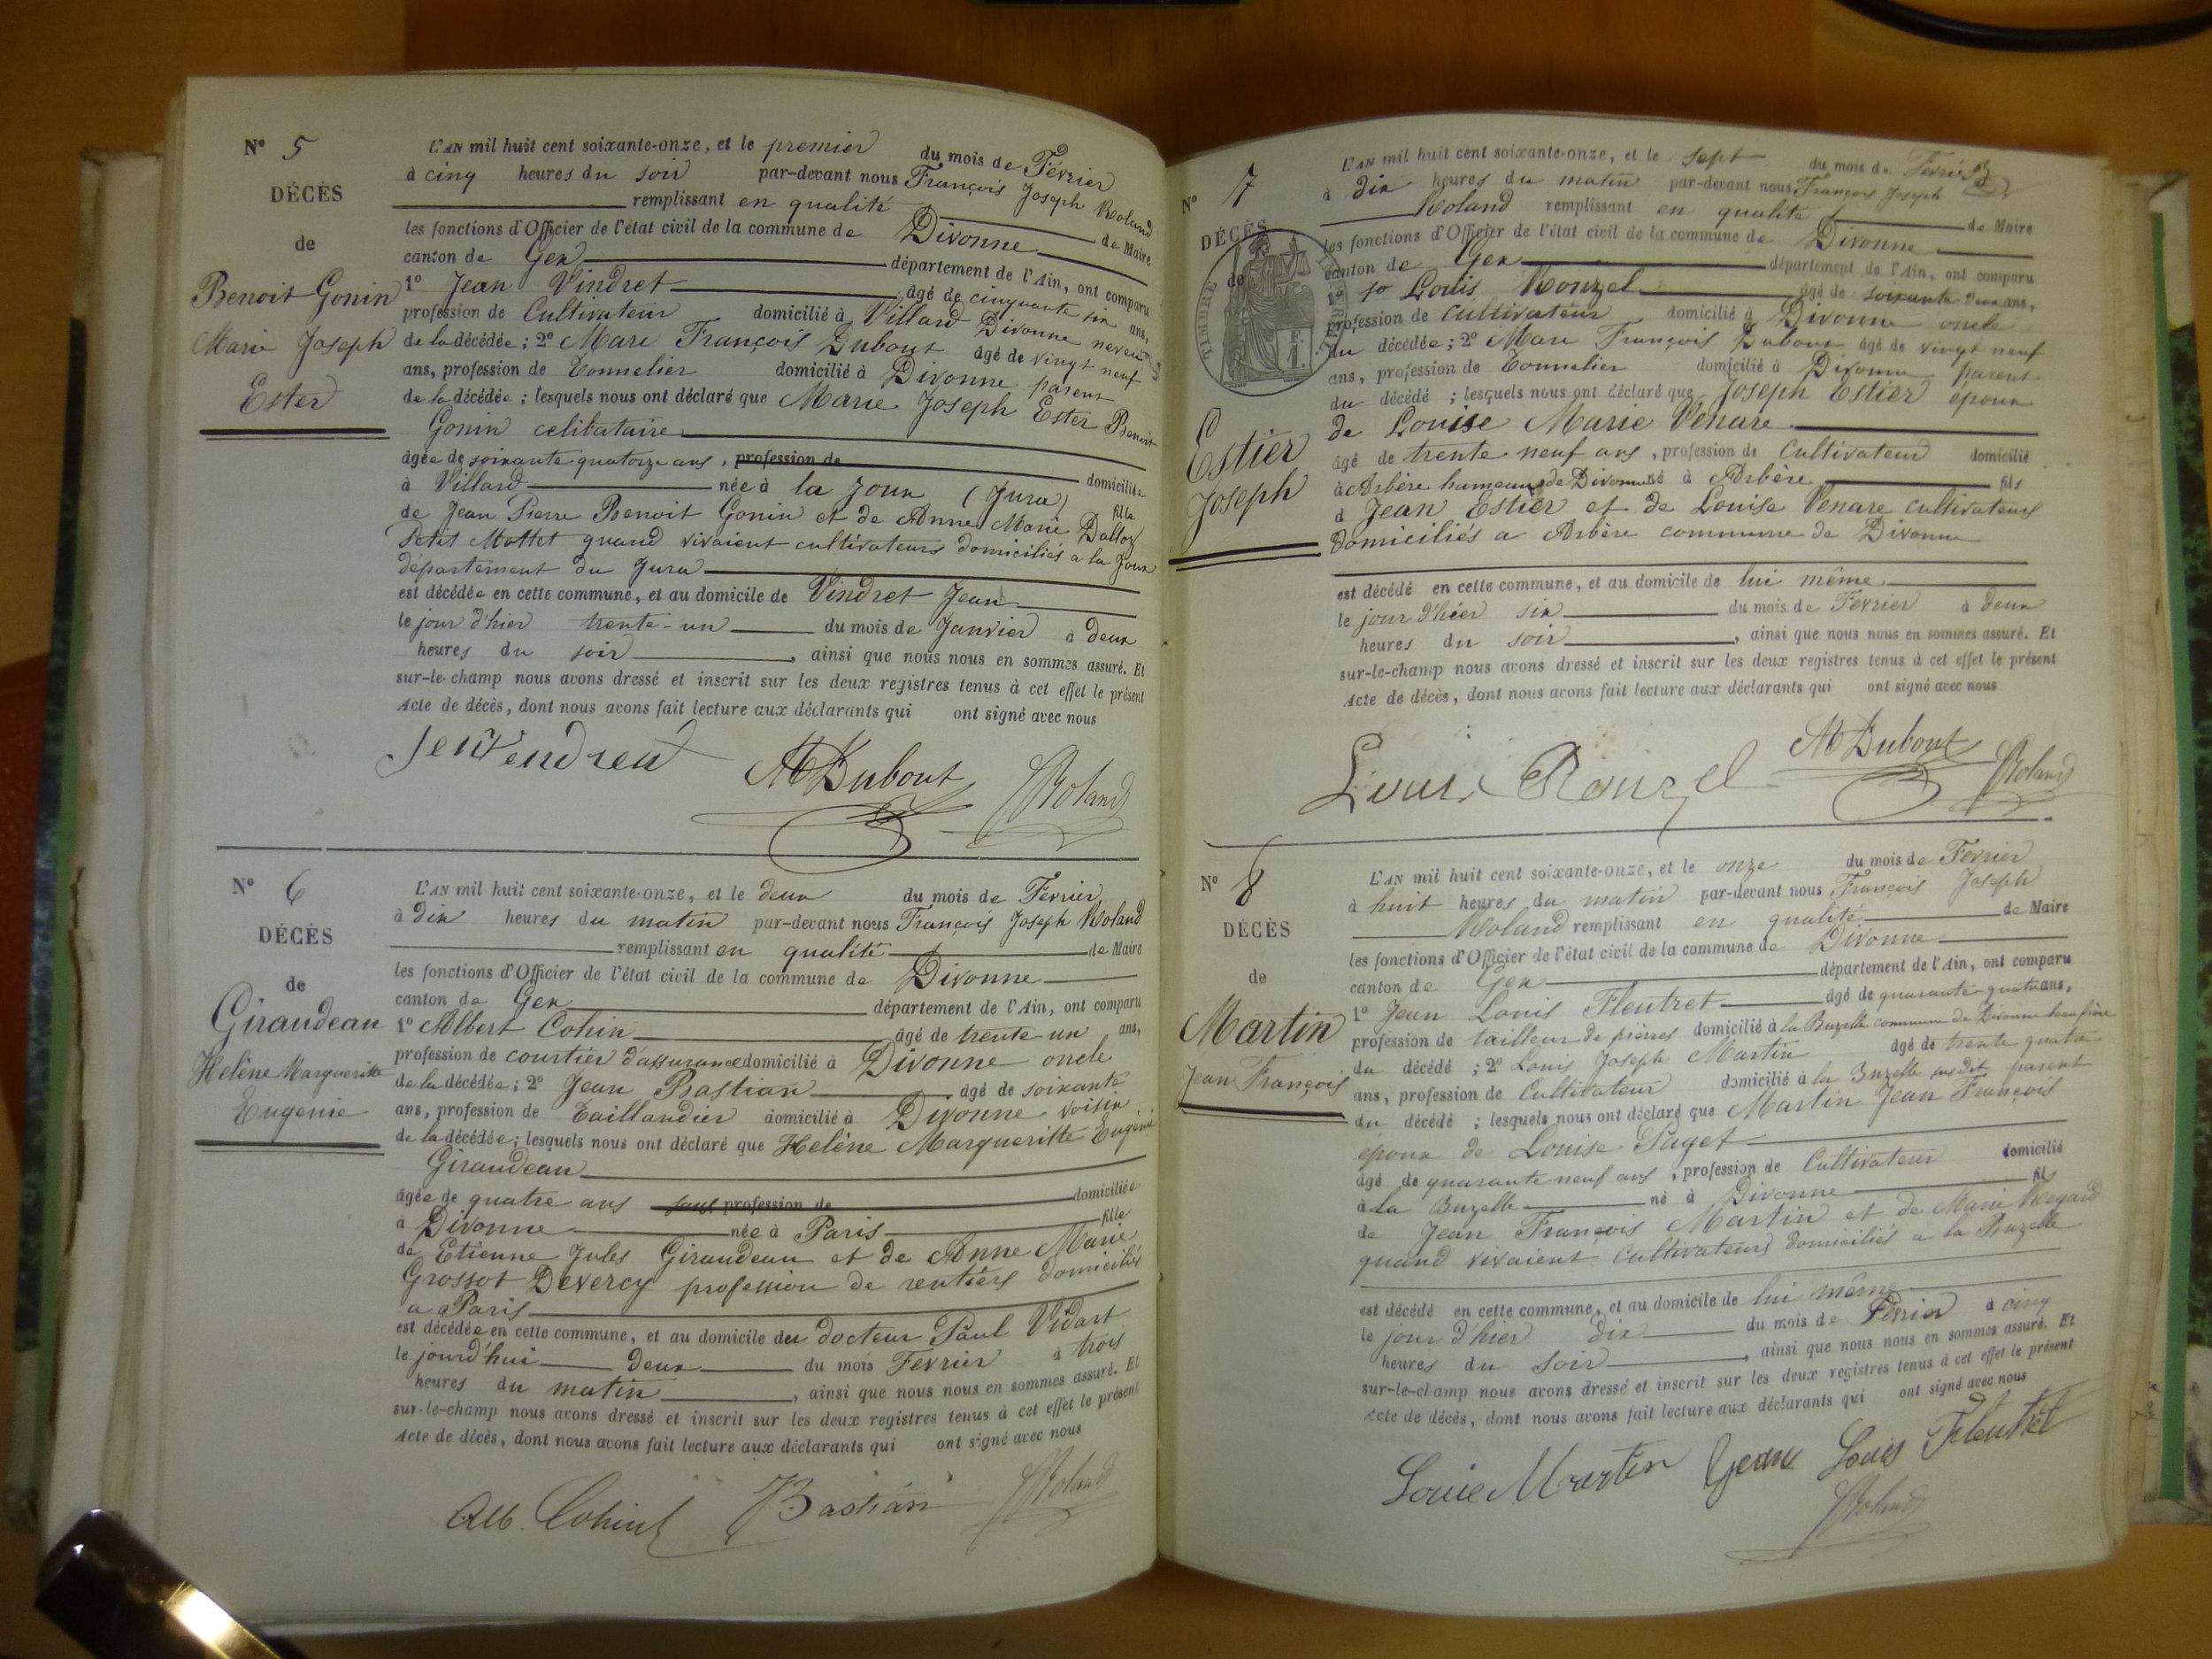 Nº 5
DÉCÈS
de
Benoit Gonin
Marie Joseph
Ester
L'AN mil huit cent soixante-onze, et le premier du mois de Février
à cinq heures du soir par-devant nous François Joseph Roland
remplissant en qualité de Maire
les fonctions d'Officier de l'état civil de la commune de Divonne
canton de Gex département de l'Ain, ont comparu
1º Jean Vindret âgé de cinquante six ans,
profession de Cultivateur domicilié à Villard Divonne neveu
de la décédée ; 2º Marc François Dubout âgé de vingt neuf
ans, profession de Tonnelier domicilié à Divonne parent
de la décédée ; lesquels nous ont déclaré que Marie Joseph Ester Benoit
Gonin celibataire
âgée de soixante quatorze ans, profession de domiciliée
à Villard née à la Joux (Jura) fille
de Jean Pierre Benoit Gonin et de Anne Marie Dalloz
Petit Mottet quand vivaient cultivateurs domiciliés a la Joux
département du Jura
est décédée en cette commune, et au domicile de Vindret Jean
le jour d'hier trente-un du mois de Janvier à deux
heures du soir, ainsi que nous nous en sommes assuré. Et
sur-le-champ nous avons dressé et inscrit sur les deux registres tenus à cet effet le présent
Acte de décès, dont nous avons fait lecture aux déclarants qui ont signé avec nous
M Dubout Roland
Nº 6
DÉCÈS
de
Giraudeau
Helène Margueritte
Eugenie
L'AN mil huit cent soixante-onze, et le deux du mois de Fevrier
à dix heures du matin par-devant nous François Joseph Roland
remplissant en qualité de Maire
les fonctions d'Officier de l'état civil de la commune de Divonne
canton de Gex département de l'Ain, ont comparu
1º Albert Cohin âgé de trente-un ans,
profession de courtier d'assurance domicilié à Divonne oncle
de la décédée ; 2º Jean Bastian âgé de soixante
ans, profession de Taillandier domicilié à Divonne voisin
de la décédée ; lesquels nous ont déclaré que Helène Margueritte Eugenie
Giraudeau
âgée de quatre ans sans profession de domiciliée
à Divonne née à Paris fille
de Etienne Jules Giraudeau et de Anne Marie
Grossot Devercy profession de rentiers domiciliés
a Paris
est décédée en cette commune, et au domicile du docteur Paul Vidart
le jourd'hui deux du mois Fevrier à trois
heures du matin, ainsi que nous nous en sommes assuré. Et
sur-le-champ nous avons dressé et inscrit sur les deux registres tenus à cet effet le présent
Acte de décès, dont nous avons fait lecture aux déclarants qui ont signé avec nous
Alb. Cohin Bastian Roland
Nº 7
DÉCÈS
de
TIMBRE
Estier
Joseph
L'AN mil huit cent soixante-onze, et le sept du mois de Février
à dix heures du matin par-devant nous François Joseph
Roland remplissant en qualité de Maire
les fonctions d'Officier de l'état civil de la commune de Divonne
canton de Gex département de l'Ain, ont comparu
1º Louis Rouzel âgé de soixante deux ans,
profession de cultivateur domicilié à Divonne oncle
du décédée ; 2º Marc François Dubout âgé de vingt neuf
ans, profession de Tonnelier domicilié à Divonne parent
du décédé ; lesquels nous ont déclaré que Joseph Estier époux
de Louise Marie Venare
âgé de trente neuf ans, profession de Cultivateur domicilié
à Arbère hameau de Divonne né à Arbère fils
d Jean Estier et de Louise Venare cultivateurs
domiciliés a Arbère commune de Divonne
est décédé en cette commune, et au domicile de lui même
le jour d'hier six du mois de Fevrier à deux
heures du soir, ainsi que nous nous en sommes assuré. Et
sur-le-champ nous avons dressé et inscrit sur les deux registres tenus à cet effet le présent
Acte de décès, dont nous avons fait lecture aux déclarants qui ont signé avec nous
Louis Rouzel M Dubout Roland
Nº 8
DÉCÈS
de
Martin
Jean François
L'AN mil huit cent soixante-onze, et le onze du mois de Fevrier
à huit heures du matin par-devant nous François Joseph
Roland remplissant en qualité de Maire
les fonctions d'Officier de l'état civil de la commune de Divonne
canton de Gex département de l'Ain, ont comparu
1º Jean Louis Fleutret âgé de quarante-quatre ans,
profession de tailleur de pierres domicilié à la Buzelle commune de Divonne beau frère
du décédé ; 2º Louis Joseph Martin âgé de trente quatre
ans, profession de Cultivateur domicilié à la Buzelle susdit parent
du décédé ; lesquels nous ont déclaré que Martin Jean François
époux de Louise Paget
âgé de quarante neuf ans, profession de Cultivateur domicilié
à la Buzelle né à Divonne fils
de Jean François Martin et de Marie Regard
quand vivaient Cultivateurs domiciliés a la Buzelle
est décédé en cette commune, et au domicile de lui même
le jour d'hier dix du mois de Février à cinq
heures du soir, ainsi que nous nous en sommes assuré. Et
sur-le-champ nous avons dressé et inscrit sur les deux registres tenus à cet effet le présent
Acte de décès, dont nous avons fait lecture aux déclarants qui ont signé avec nous
Louis Martin Jean Louis Fleutret
Roland